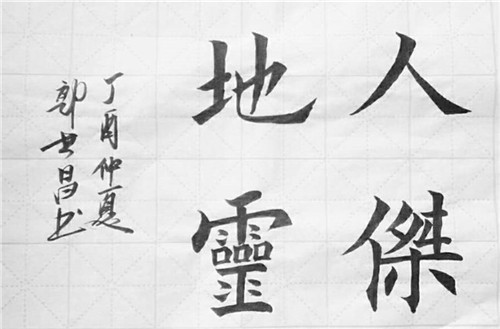 人傑
地靈
丁酉仲夏
郭世昌书